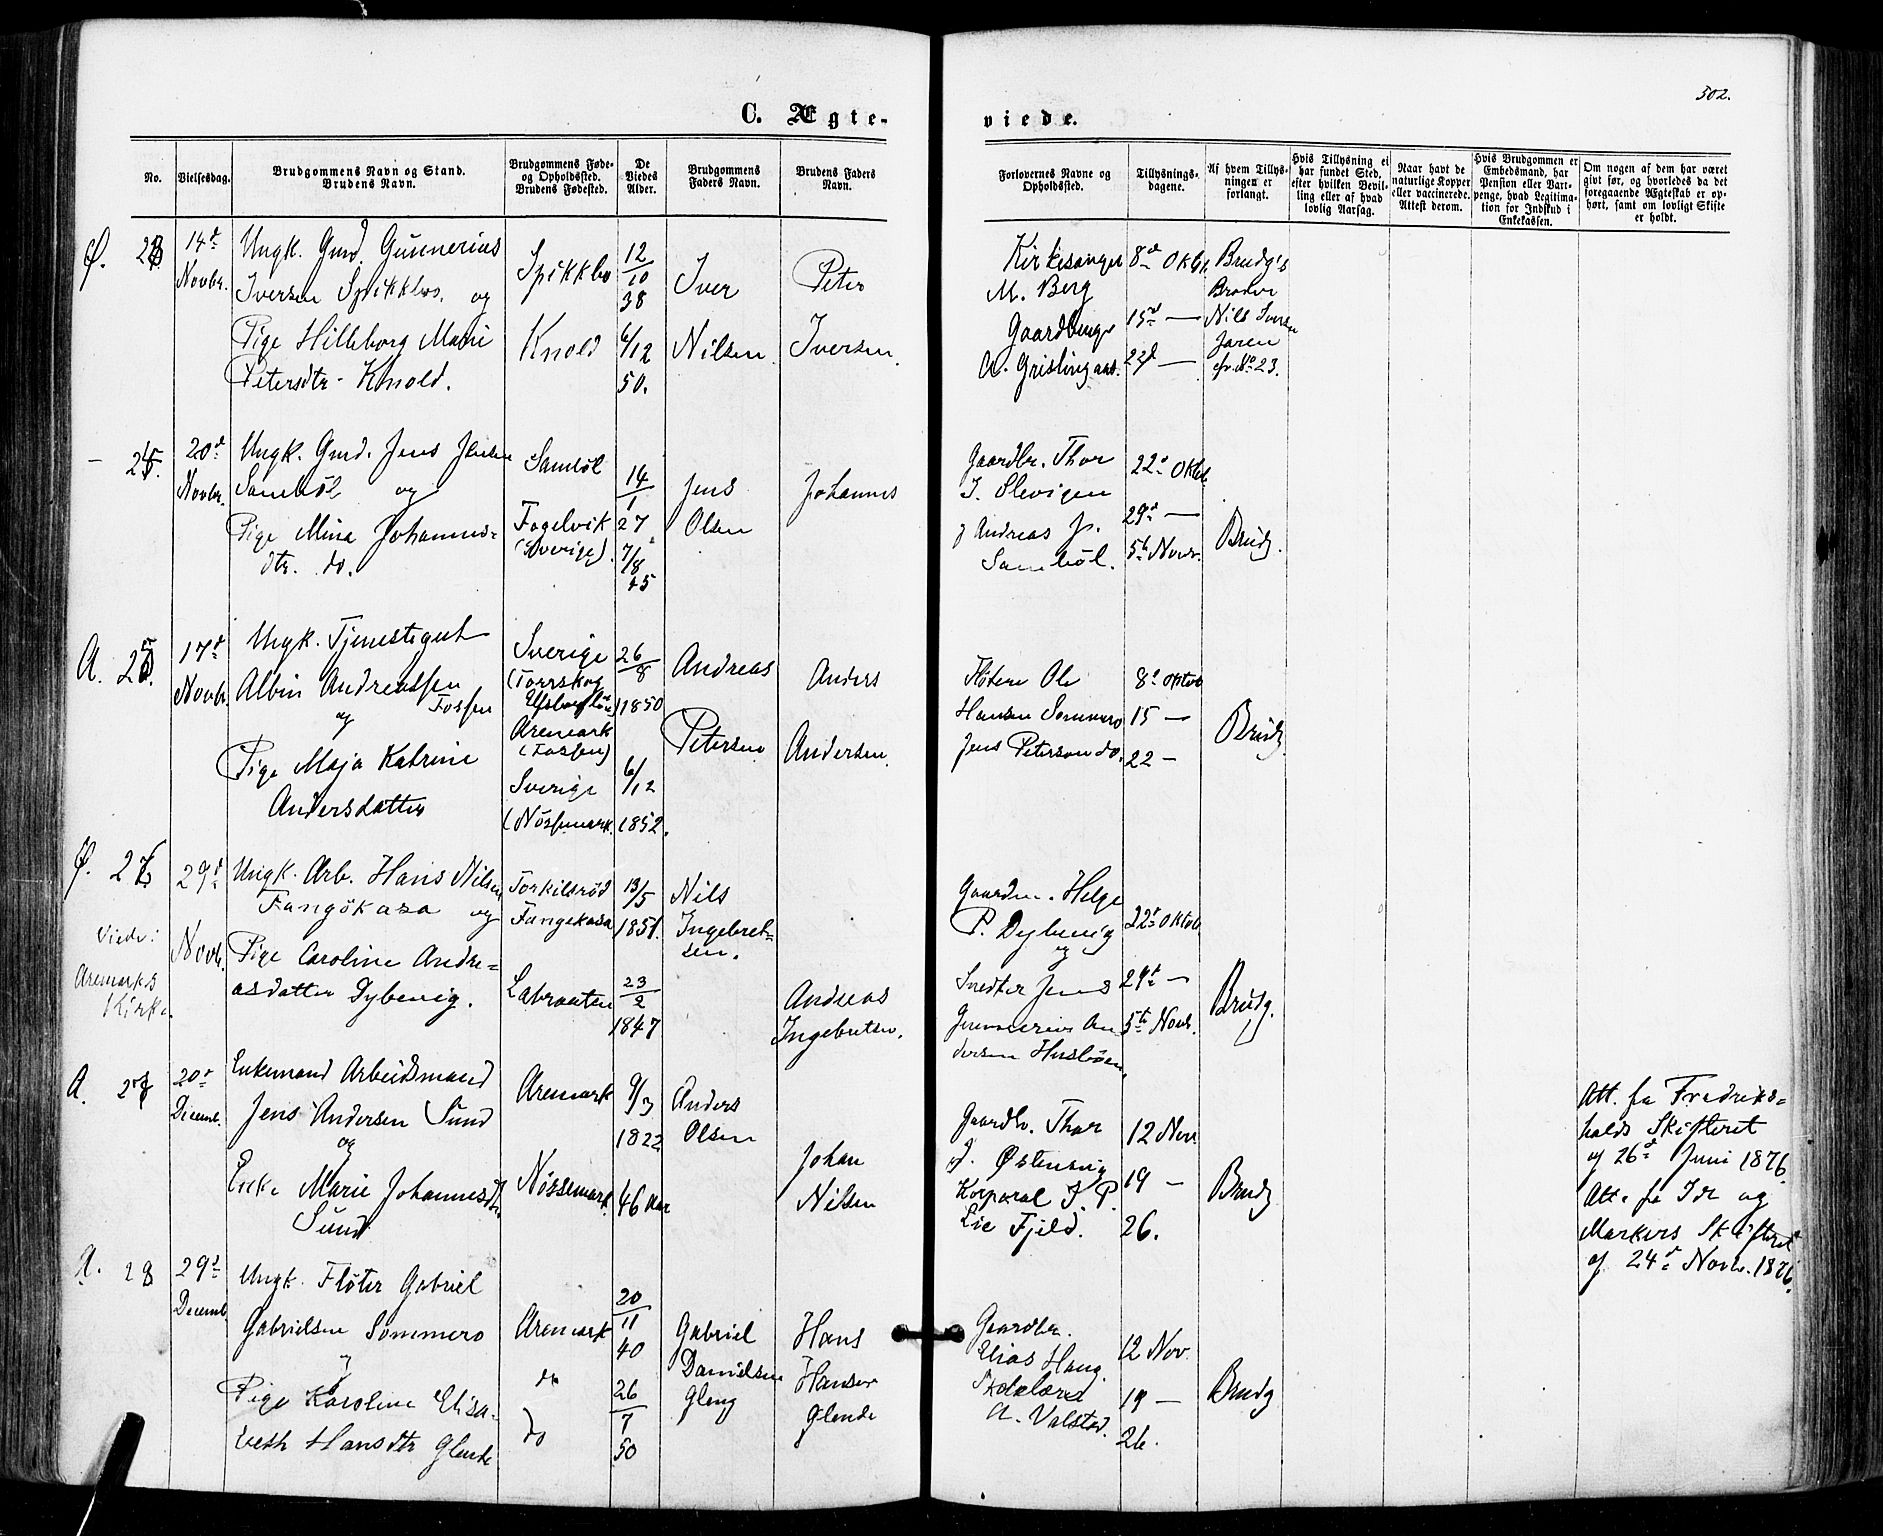 502.
C. Ægte-
viede.
No.
Vielsesdag.
Brudgommens Navn og Stand.
Brudens Navn.
Brudgommens Føde-
og Opholdssted.
Brudens Fødested.
De
Viedes
Alder.
Brudgommens
Faders Navn.
Brudens Faders
Navn.
Forlovernes Navne og
Opholdssted.
Tillysnings-
dagene.
Af hvem Tillys-
ningen er
forlangt.
Hvis Tillysning ei
har fundet Sted,
efter hvilken Bevil-
ling eller af hvad
lovlig Aarsag.
Naar havt de
naturlige Kopper
eller vaccinerede.
Attest derom.
Hvis Brudgommen er
Embedsmand, har
Pension eller Vart-
penge, hvad Legitima-
tion for Indskud i
Enkekassen.
Om nogen af dem har været
givt før, og hvorledes da det
foregaaende Ægteskab er op-
hørt, samt om lovligt Skifte
er holdt.
Ø.
14d
Novbr.
Ungk. Gmd. Gunnerius
Iversen Spikkbo. og
Pige Hilleborg Marie
Petersdtr Knold.
Spikkbo
Knold
12/10
38
6/12
50.
Iver
Nilsen
Peter
Iversen.
Kirkesanger
M. Berg
Gaardbruger
A. Grislingaas.
8d Oktbr.
15d —
22d —
Brudg's
Broder
Nils Iversen
Jaren
cfr. No 23.
—
20d
Novbr.
Ungk. Gmd. Jens Jensen
Sambøl og
Pige Mina Johannes-
dtr. do.
Sambøl
Fogelvik
(Sverige).
14/1
27.
7/8
45
Jens
Olsen
Johannes
Gaardbr. Thor
J. Slevigen
Andreas J.
Sambøl.
22d Oktbr.
29d —
5te Novbr.
Brudg.
A.
17d
Novbr.
Ungk. Tjenestegut
Albin Andreassen
Fossen
og
Pige Maja Katrine
Andersdatter
Sverige
(Torrskog
Elfsborglän)
Aremark
(Fossen)
Sverige
(Nössemark.
26/8
1850
6/12
1852.
Andreas
Petersen
Anders
Andersen.
Fløtere Ole
Hansen Sommero
Jens Peterson do.
8d Oktob
15 —
22 —
Brudg.
Ø.
Viede i
Aremarks
Kirke.
29d
Novb.
Ungk. Arb. Hans Nilsen
Fangekasa og
Pige Caroline Andre=
asdatter Dybevig.
Torkilsrød
Fangekasa
Labraaten
13/5
1851.
23/2
1847
Nils
Ingebret-
sen.
Andreas
Ingebretsen.
Gaardm. Helge
P. Dybevig
og
Snedker Jens
Gunnerius An
dersen Husbøen.
22d Oktob.
29d —
5te Novb.
Brudg.
A. 27
20d
Decemb.
Enkemand Arbeidsmand
Jens Andersen Sund
og
Enke Marie Johannesdtr
Sund
Aremark
Nössemark
9/3
1822
46 Aar
Anders
Olsen
Johan
Nilsen
Gaardbr. Thor
J. Østensvig
Korporal J. P.
Lie Fjeld.
12 Nov.
19 —
26.
Brudg
Att. fra Fredriks=
halds Skifteret
af 26d Juni 1876.
Att. fra Ide og
Markers Skifteret
af 24d Novb. 1876.
A. 28
29d
Decemb.
Ungk. Fløter Gabriel
Gabrielsen Sommero
og
Pige Karoline Elisa-
beth Hansdtr Glende
Aremark
do
do
20/11
40
26/7
50
Gabriel
Danielsen
Gleng
Hans
Hansen
Glende
Gaardbr.
Elias Haug
Skolelærer
A. Valstad.
12 Nov.
19 —
26.
Brudg